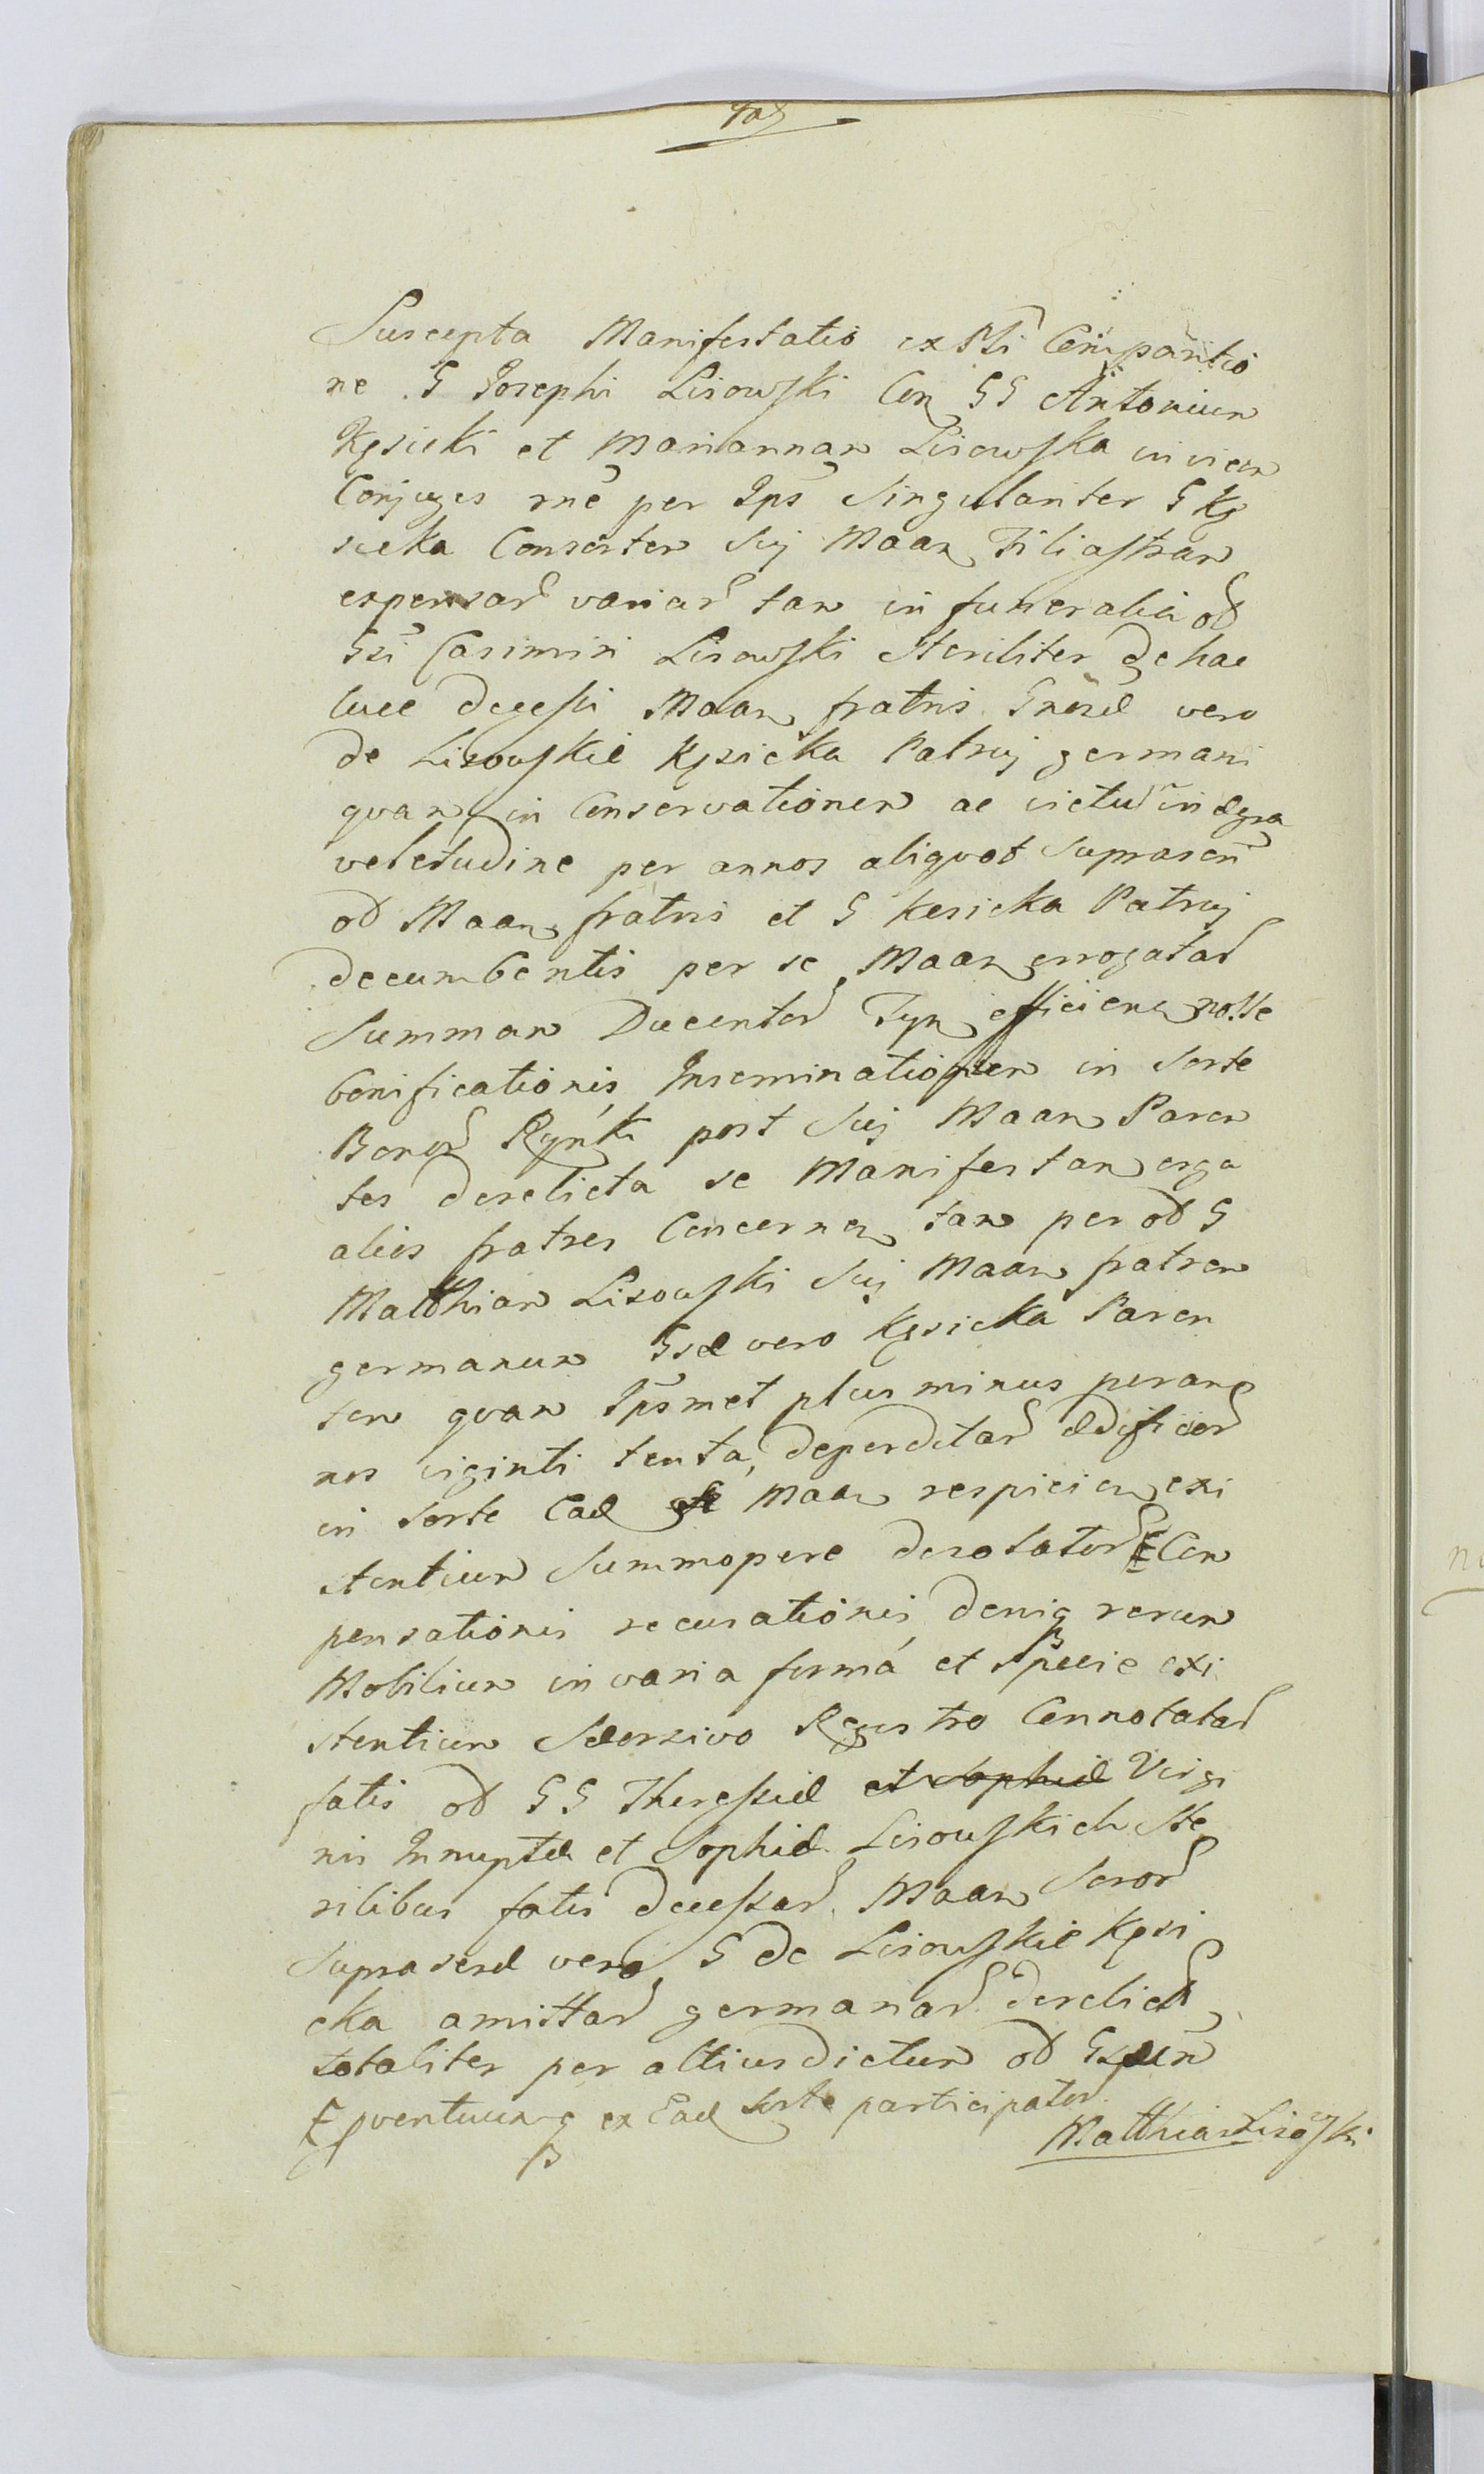 Suscepta Manifestatio ex Pti Comparitio
ne G Josephi Lisowski Con GG Antonium
Kęsicki et Mariannam Lisowska invicem
Conjuges rne per Ips Singulariter G Kę
sicka Consorten Sui Maan Filiastram
expensar variar tam in funeralia od
Gsi Casimiri Lisowski steriliter de hac
luce decessi Maan fratris Gnosæ vero
de Lisowskie Kęsicka Patrui germani
quam in Conservationem ac victu in ægra
veletudine per annos aliquot Suprascri
od Maan fratris et G Kesicka Patrui
decumbentis per se Maan errogatar
Summam Ducentor Tyn efficien nolle
bonificationis, Inseminationum in Sorte
Bonor Rynki post Sui Maan Paren
tes derelicta se Manifestan erga
alios fratres Concernen tam per od G
Matthiam Lisowski Sui Maan fratrem
germanum Gsæ vero Kęsicka Paren
tem quam Ipsmet plus minus peran
nos viginti tenta, deperditar ædificior
in sorte Ead Maan respicien exi
stentium Summopere desolator Com
pensationis recusationis, deniq rerum
Mobilium in varia formá et Specie exi
stentium Seorsivo Regestro Connotatar
fatis od GG Theressiæ et Sophiæ Virgi
nis Innuptæ et Sophiæ Lisowskich Ste
rilibus fatis decessar Maan Soror
Suprascræ vero G de Lisowskie Kęsi
cka amittar germanar derelict
totaliter per altius dictum od
proventuumq ex Ead sorte participator.
Matthias Lisowski